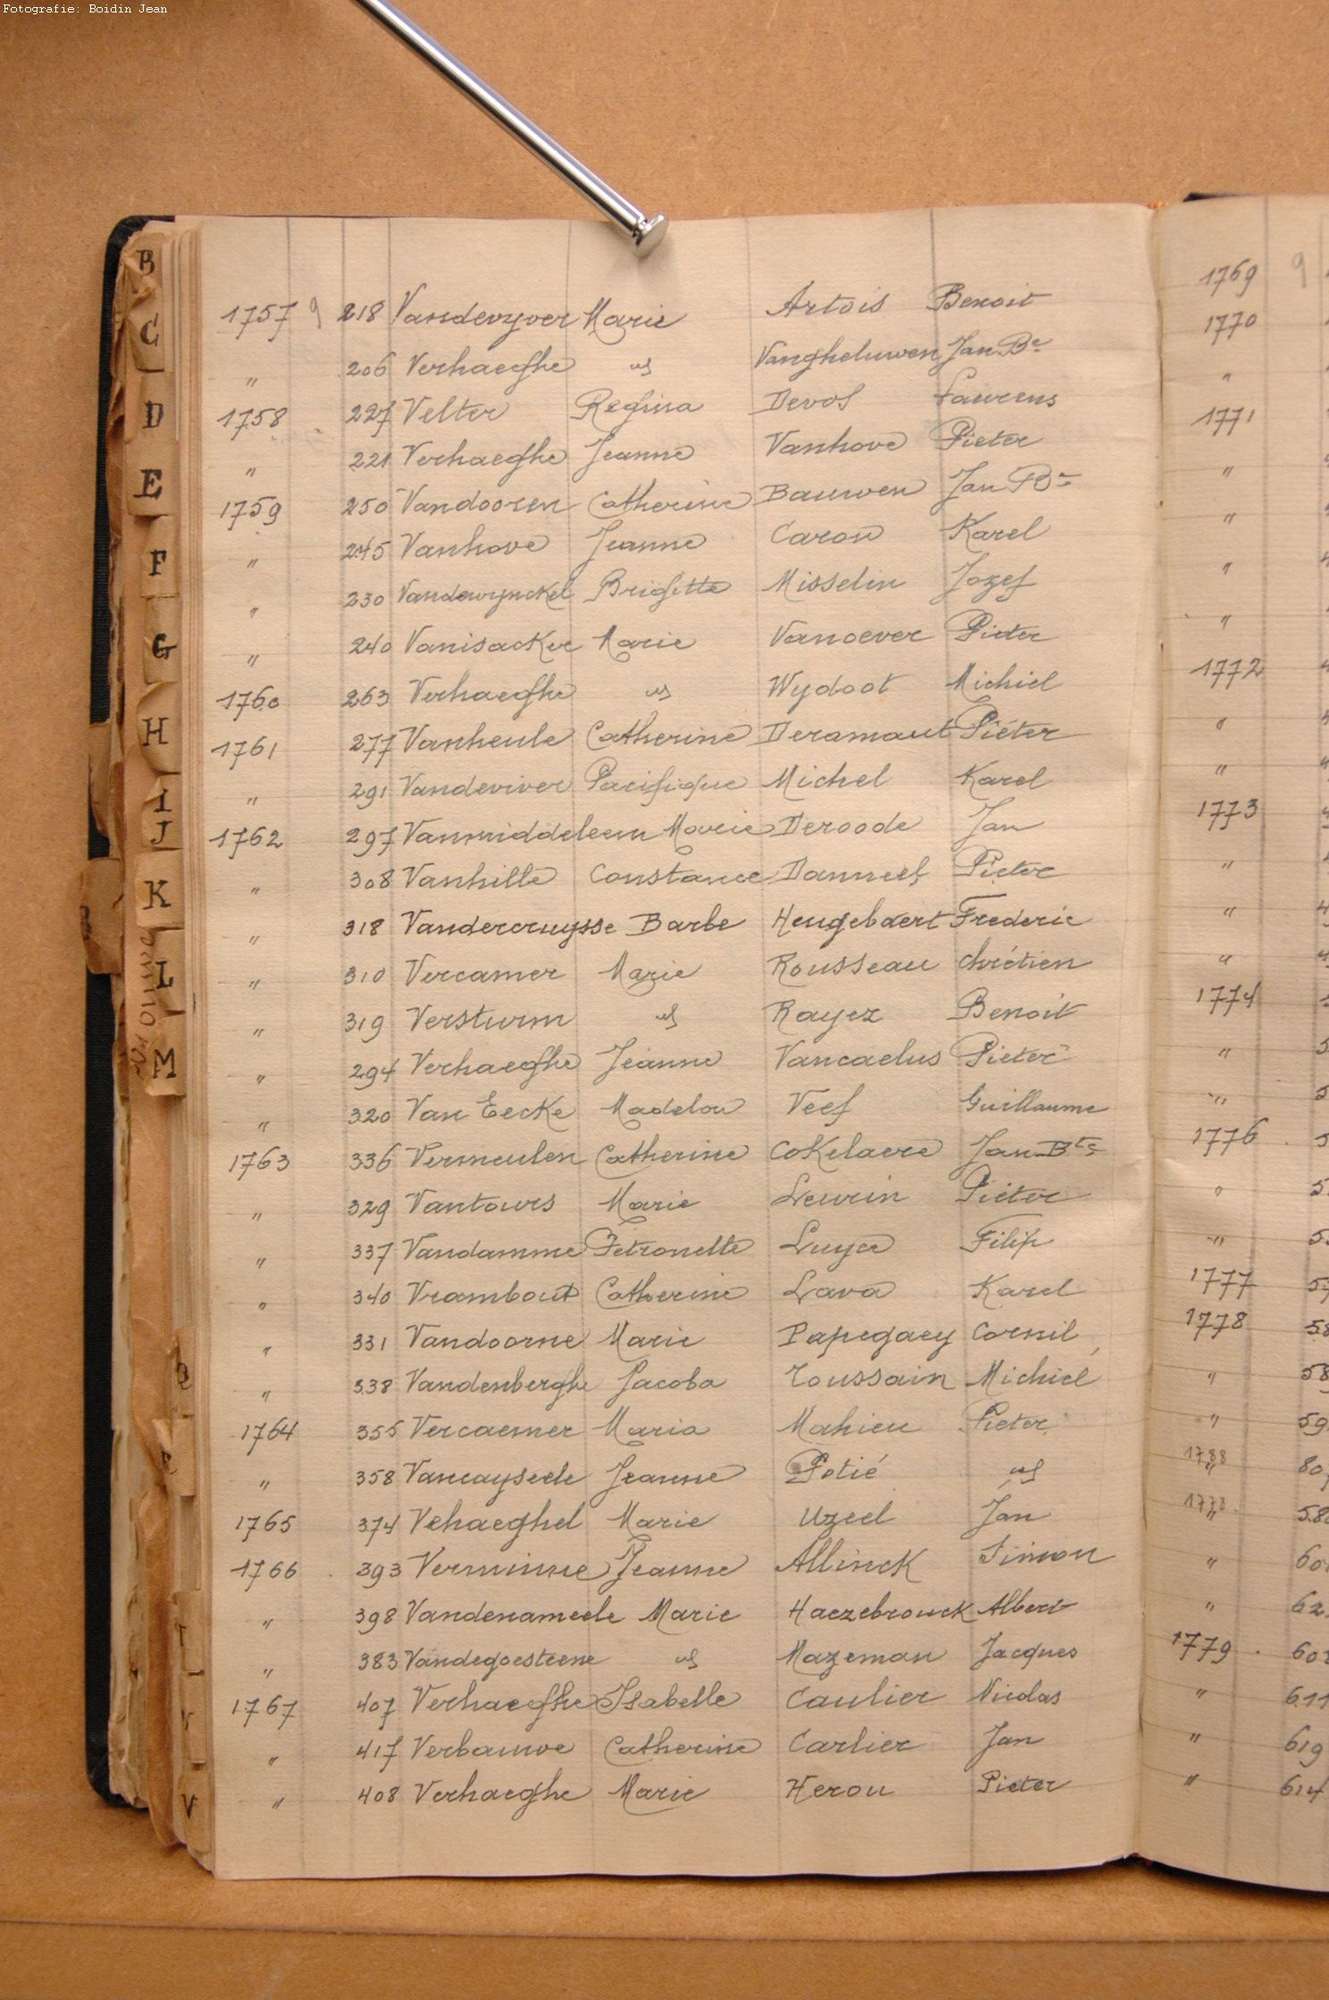 Fotografie: Boidin Jean
B
C
D
E
F
G
H
I
J
K
L
M
T
V
V
1757 9 218 Vandevyver Marie Artois Benoit
" 206 Verhaeghe " Vangheluwen Jan Bte
1758 227 Velter Regina Devos Laurens
" 221 Verhaeghe Jeanne Vanhove Pieter
1759 250 Vandooren Catherine Bauwen Jan Bte
" 245 Vanhove Jeanne Caron Karel
" 230 Vandewynckel Brigitte Misselin Jozef
" 240 Vanisacker Marie Vanoever Pieter
1760 263 Verhaeghe " Wydoot Michiel
1761 277 Vanheule Catherine Deramaut Piéter
" 291 Vandeviver Pacifique Michel Karel
1762 297 Vanmiddeleem Marie Deroode Jan
" 308 Vanhille Constance Danneel Pieter
" 318 Vandercruysse Barbe Heugebaert Frederic
" 310 Vercamer Marie Rousseau Chrétien
" 319 Versturm " Rayez Benoit
" 294 Verhaeghe Jeanne Vancaelus Pieter
" 320 Van Eecke Madelon Veef Guillaume
1763 336 Vermeulen Catherine Cokelaere Jan Bte
" 329 Vantours Marie Leurin Piéter
" 337 Vandamme Petronelle Luyce Filip
" 340 Vrambout Catherine Lava Karel
" 331 Vandoorne Marie Papegaey Cornil
" 338 Vandenberghe Jacoba Toussain Michiel
1764 355 Vercaemer Maria Mahieu Pieter
" 358 Vancayseele Jeanne Potié "
1765 374 Vehaeghel Marie Uzeel Jan
1766 393 Verminne Jeanne Allinck Simon
" 398 Vandenameele Marie Haezebrouck Albert
" 383 Vandegoesteene " Mazeman Jacques
1767 407 Verhaeghe Isabelle Caulier Nicolas
" 417 Verbauwe Catherine Carlier Jan
" 408 Verhaeghe Marie Herou Pieter
1769 9
1770
"
1771
"
"
"
"
1772
"
"
1773
"
"
"
1774
"
"
1776
"
"
1777
1778
"
"
1788
"
"
1779
" 611
" 619
" 614